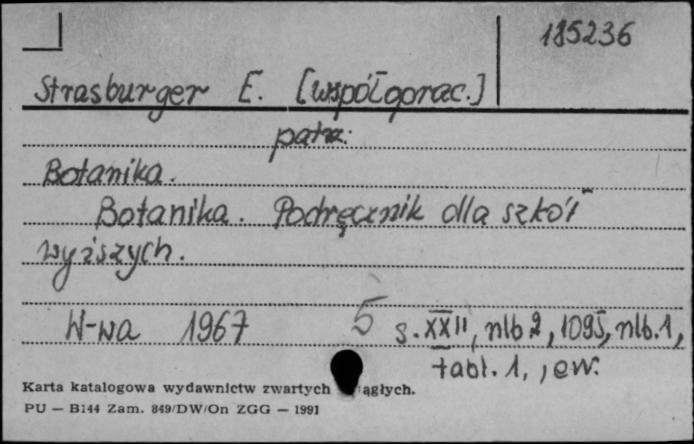 185236
Strasburger E. [współoprac.]
patrz:
Botanika.
Botanika. Podręcznik dla szkół
wyższych.
W-wa 1967 5 s. XXII, nlb 2, 1095, nlb. 1,
tabl. 1,
Karta katalogowa wydawnictw zwartych ągłych.
PU — B144 Zam. 849/DW/On ZGG — 1991